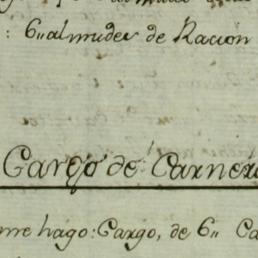 : 6,, almudes de Racion
Cargo de Carnero
me hago: Cargo, de 6,, Ca